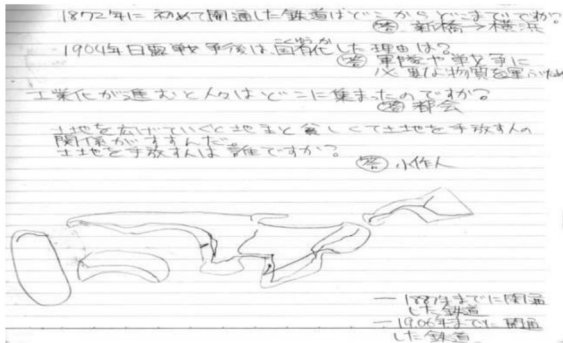 1872年に初めて開通した鉄道はどこからどこまでですか?
答 新橋→横浜
1904年日露戦争後は、国有化した理由は?
こくゆうか
答 軍隊や戦争に
必要な物資を運ぶため
工業化が進むと人々はどこに集まったのですか?
答 都会
土地を広げていく地主と貧しくて土地を手放す人の
関係がすすんだ。
土地を手放す人は誰ですか?
答 小作人
— 1887年までに開通
した鉄道
— 1906年までに開通
した鉄道